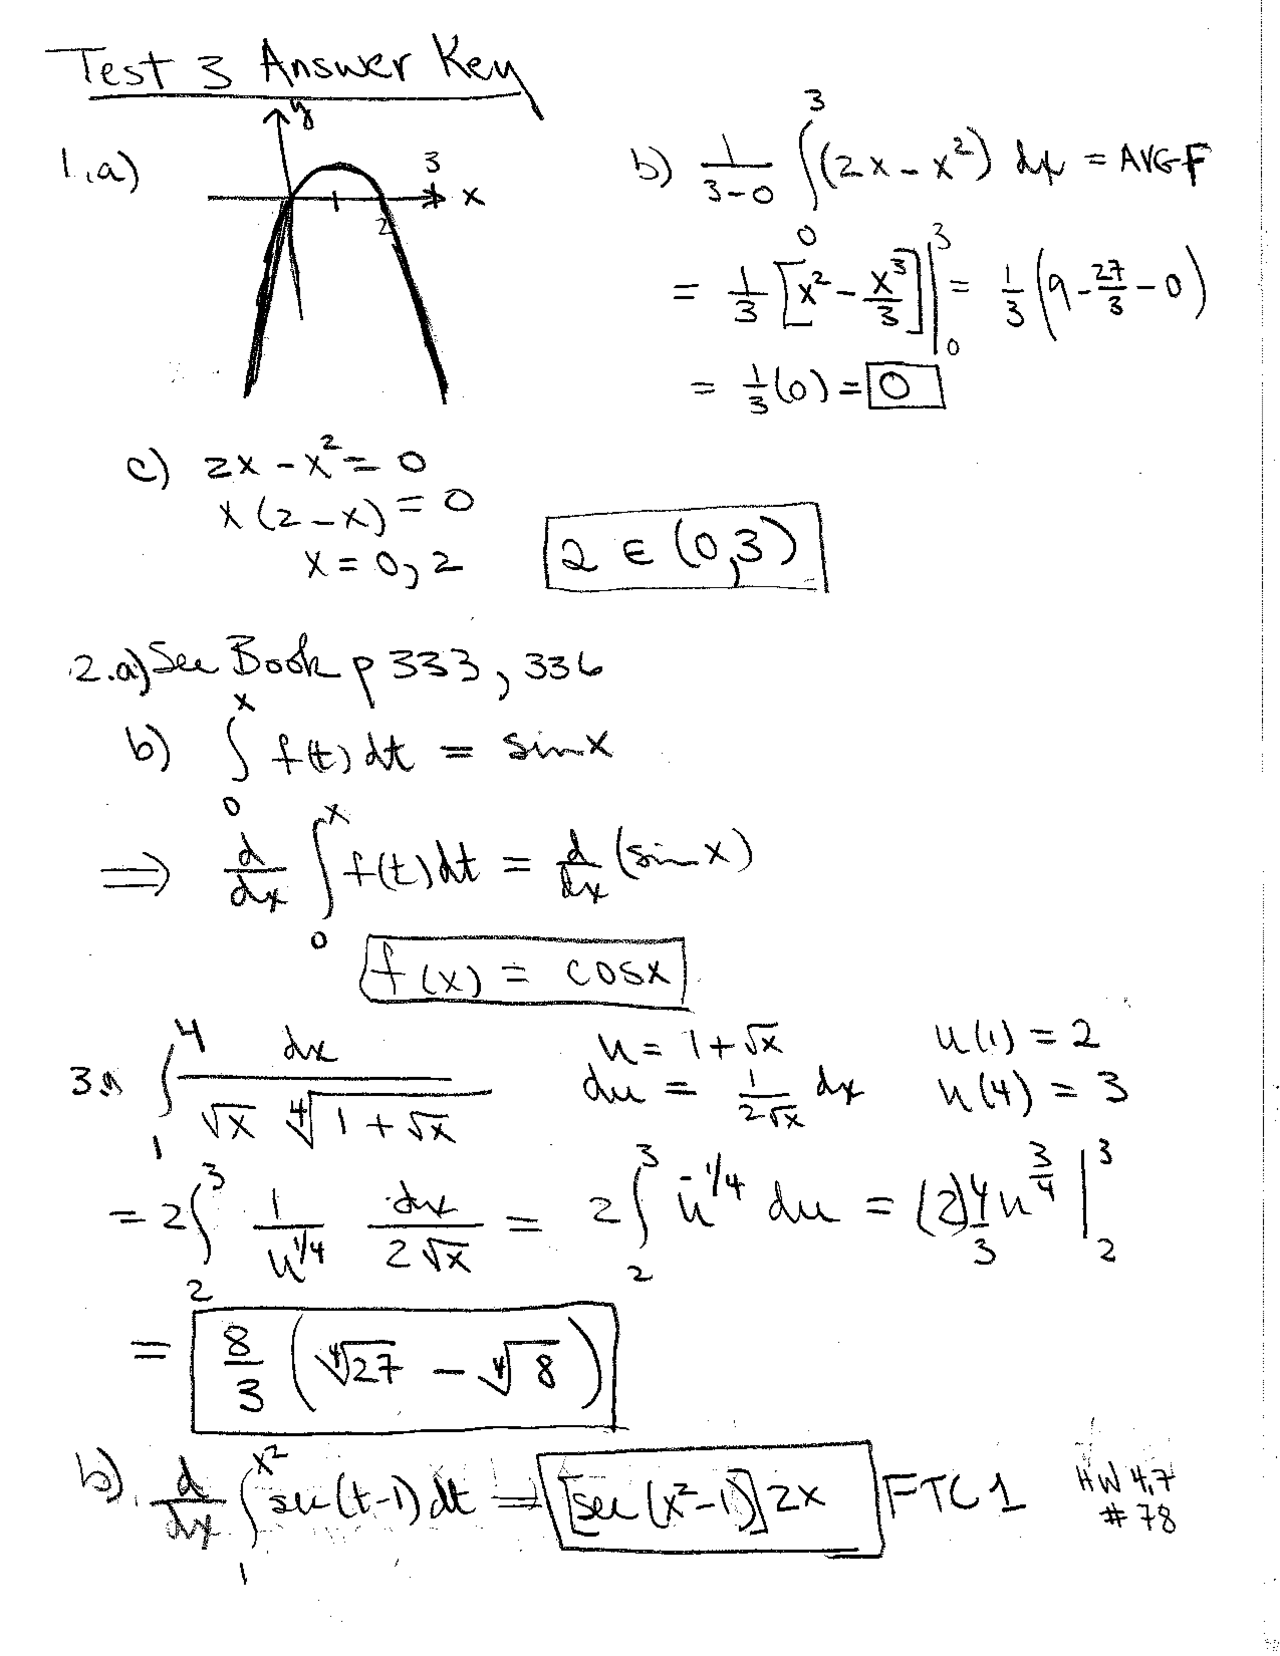 Test 3 Answer Key
1.a)
y
3
x
1
2
b) 1/(3-0) ∫_0^3 (2x - x²) dx = AVG F
= 1/3 [x² - x³/3] |_0^3 = 1/3 (9 - 27/3 - 0)
= 1/3 (0) = 0
c) 2x - x² = 0
x(2-x) = 0
x = 0, 2
2 ∈ (0,3)
2.a) See Book p 333, 336
b) ∫_0^x f(t) dt = sin x
⟹ d/dx ∫_0^x f(t) dt = d/dx (sin x)
f(x) = cos x
3.a ∫_1^4 dx/(√x ∜(1+√x))
u = 1+√x
du = 1/(2√x) dx
u(1) = 2
u(4) = 3
= 2∫_2^3 1/u^(1/4) dx/(2√x) = 2∫_2^3 u^(-1/4) du = (2) 4/3 u^(3/4) |_2^3
= 8/3 (∜27 - ∜8)
b). d/dx ∫_1^(x²) sec(t-1) dt = [sec(x²-1)] 2x FTC 1
HW 4.7
#78